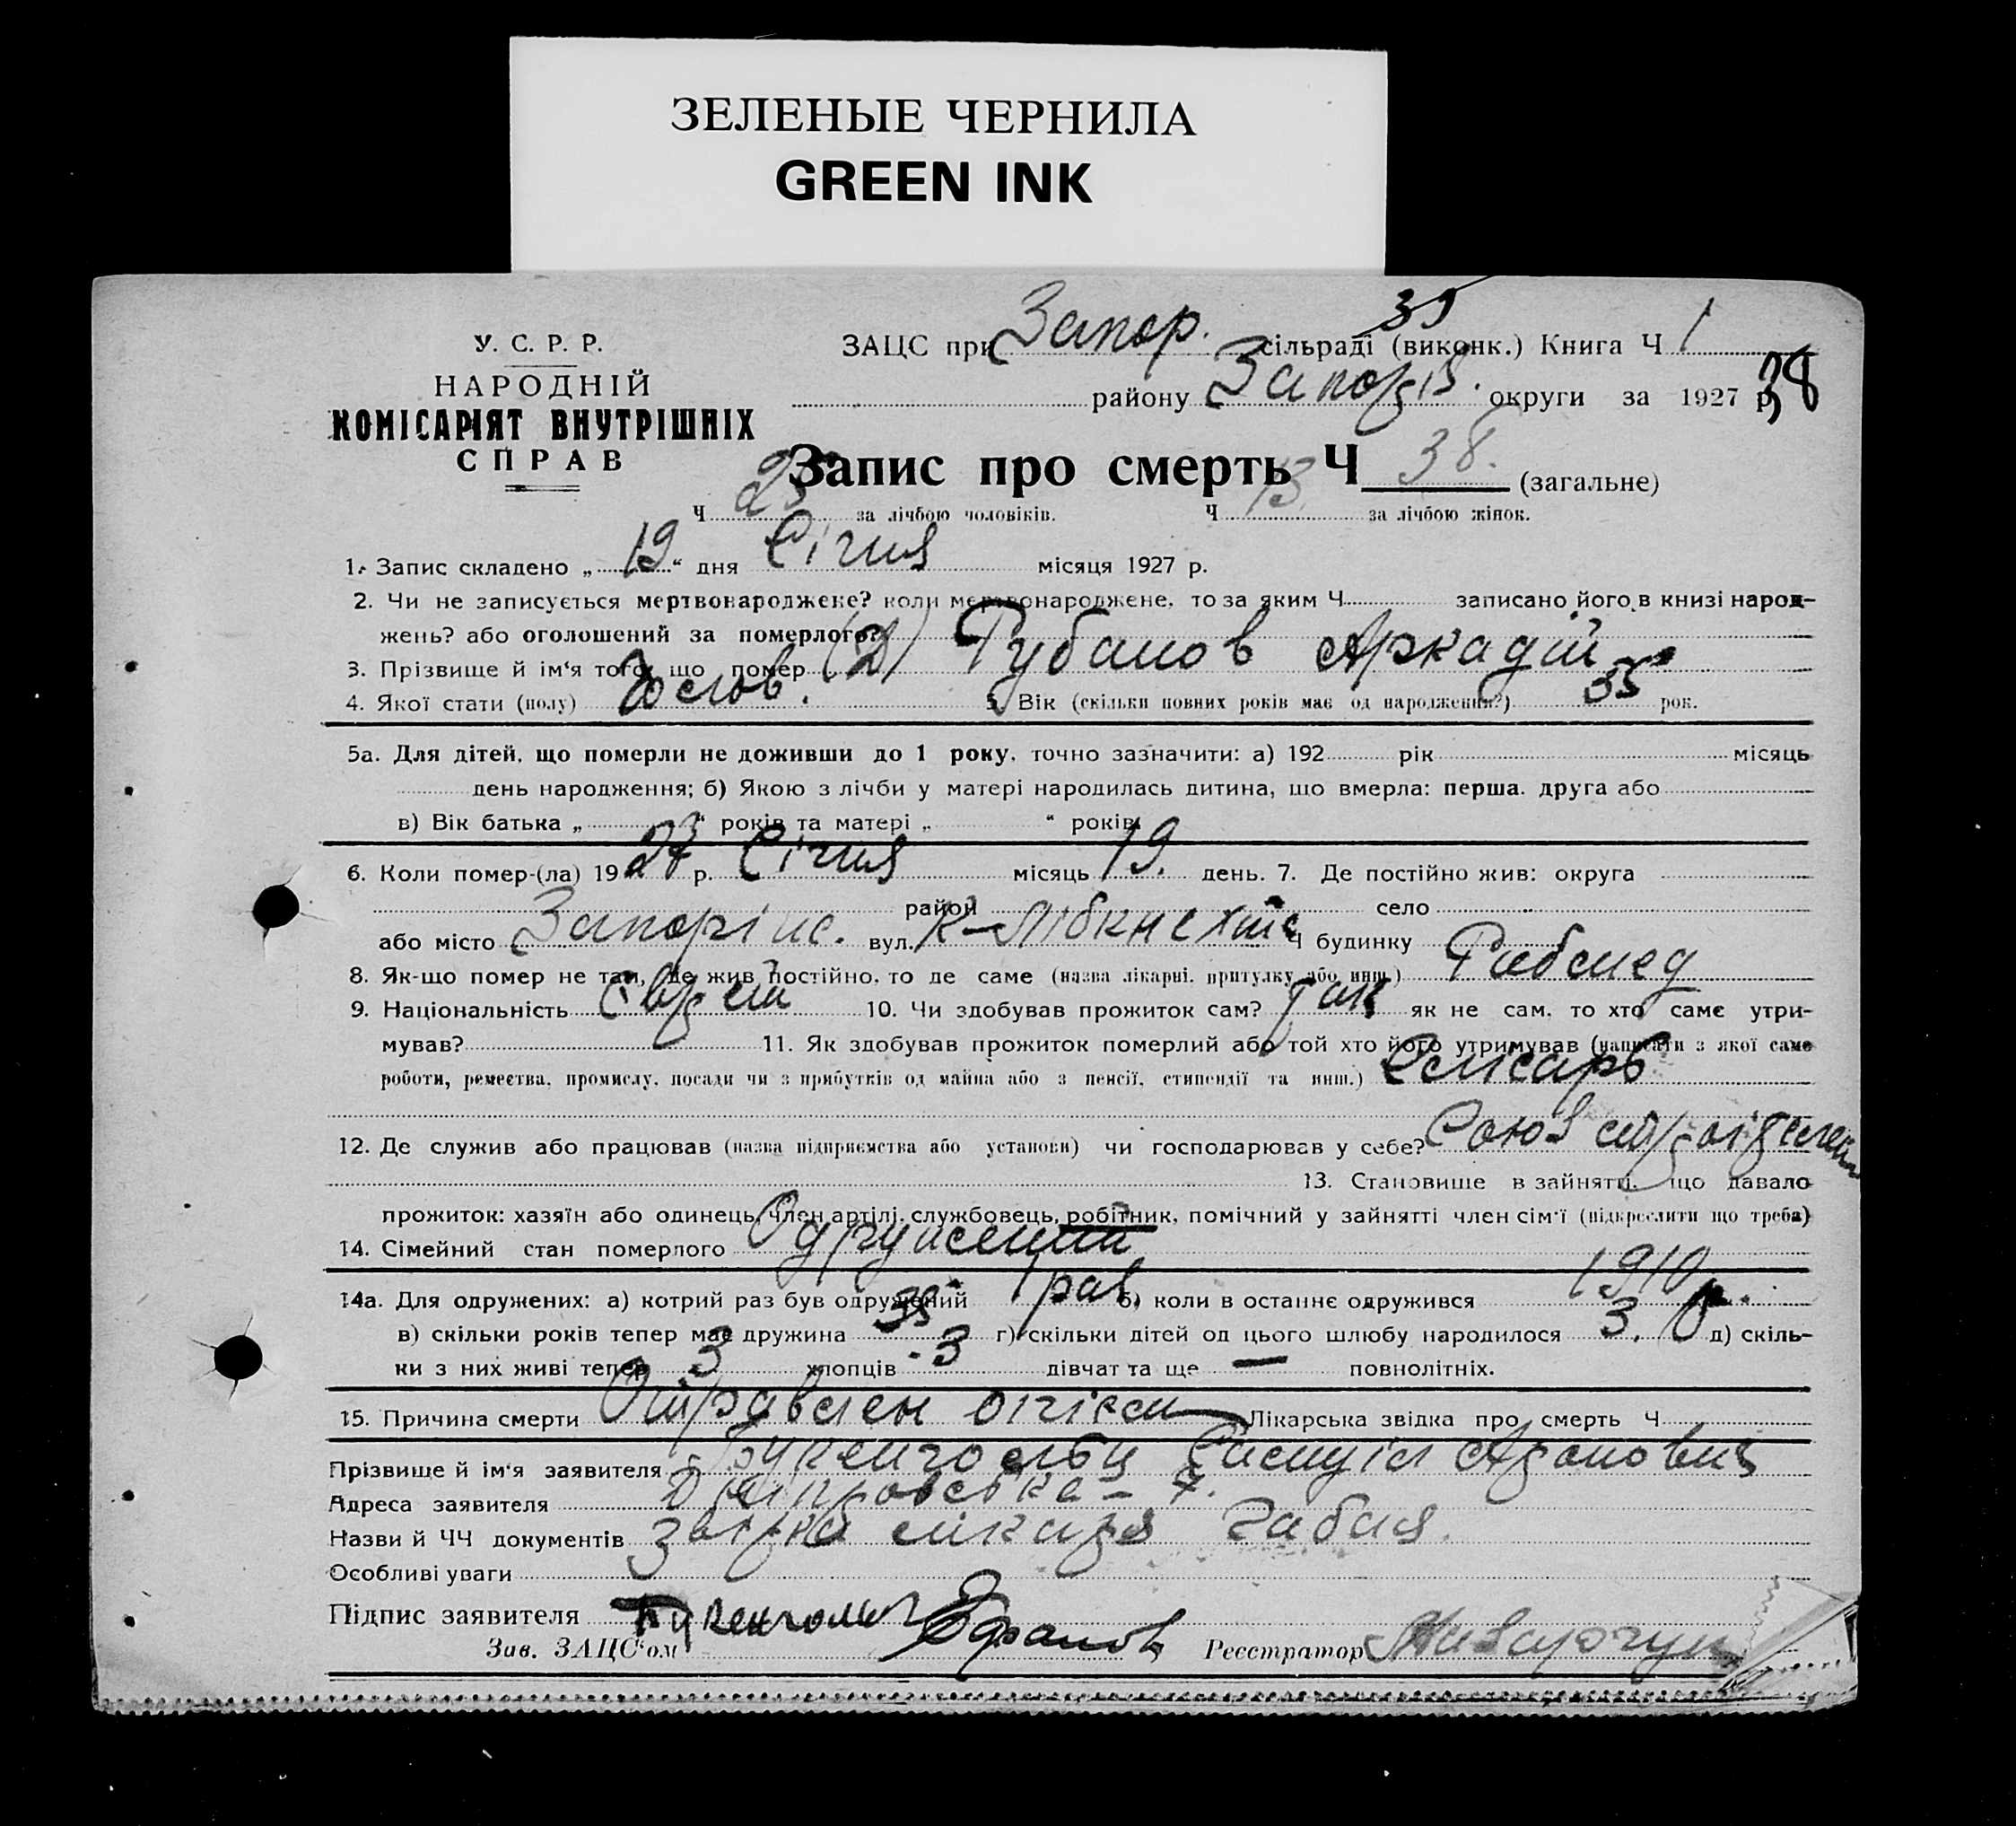 ЗЕЛЕНЫЕ ЧЕРНИЛА
GREEN INK
У. С. Р. Р.
НАРОДНІЙ
КОМІСАРІЯТ ВНУТРІШНІХ
СПРАВ
39
ЗАЦС при Запор. сільраді (виконк.) Книга Ч 1
району Запоріз. округи за 1927 р. 38
Запис про смерть Ч 38. (загальне)
Ч 25 за лічбою чоловіків. Ч 13. за лічбою жінок.
1. Запис складено „19“ дня Січня місяця 1927 р.
2. Чи не записується мертвонароджене? коли мертвонароджене, то за яким Ч записано його в книзі народ-
жень? або оголошений за померлого?
3. Прізвище й ім‘я того, що помер (2) Рубанов Аркадій
4. Якої стати (полу) Чолов. 5. Вік (скільки повних років має од народження?) 35 рок.
5а. Для дітей, що померли не доживши до 1 року, точно зазначити: а) 192 рік місяць
день народження; б) Якою з лічби у матері народилась дитина, що вмерла: перша, друга або
в) Вік батька „ “ років та матері „ “ років.
6. Коли помер-(ла) 1927 р. Січня місяць 19. день. 7. Де постійно жив: округа
район село
або місто Запоріж. вул. К-Лібкнехта Ч будинку
8. Як-що помер не там, де жив постійно, то де саме (назва лікарні, притулку або инш.) Рабмед
9. Національність Єврей 10. Чи здобував прожиток сам? так як не сам, то хто саме утри-
мував? 11. Як здобував прожиток померлий або той хто його утримував (написати з якої саме
роботи, ремества, промислу, посади чи з прибутків од майна або з пенсії, стипендії та инш.) Слісарь
12. Де служив або працював (назва підприємства або установи) чи господарював у себе? Союз
13. Становище в зайнятті, що давало
прожиток: хазяїн або одинець, член артілі, службовець, робітник, помічний у зайнятті член сім‘ї (підкреслити що треба)
14. Сімейний стан померлого Одружений
14а. Для одружених: а) котрий раз був одружений 1 раз б) коли в останнє одружився 1910 р.
в) скільки років тепер має дружина 35 г) скільки дітей од цього шлюбу народилося 3. д) скіль-
ки з них живі тепер 3 хлопців 3 дівчат та ще — повнолітніх.
15. Причина смерти Отравлен Лікарська звідка про смерть Ч
Прізвище й ім‘я заявителя Букенгольц Самуіл
Адреса заявителя Дніпровська - 7.
Назви й ЧЧ документів лікаря
Особливі уваги
Підпис заявителя Букенгольц
Зав. ЗАЦС‘ом Реєстратор